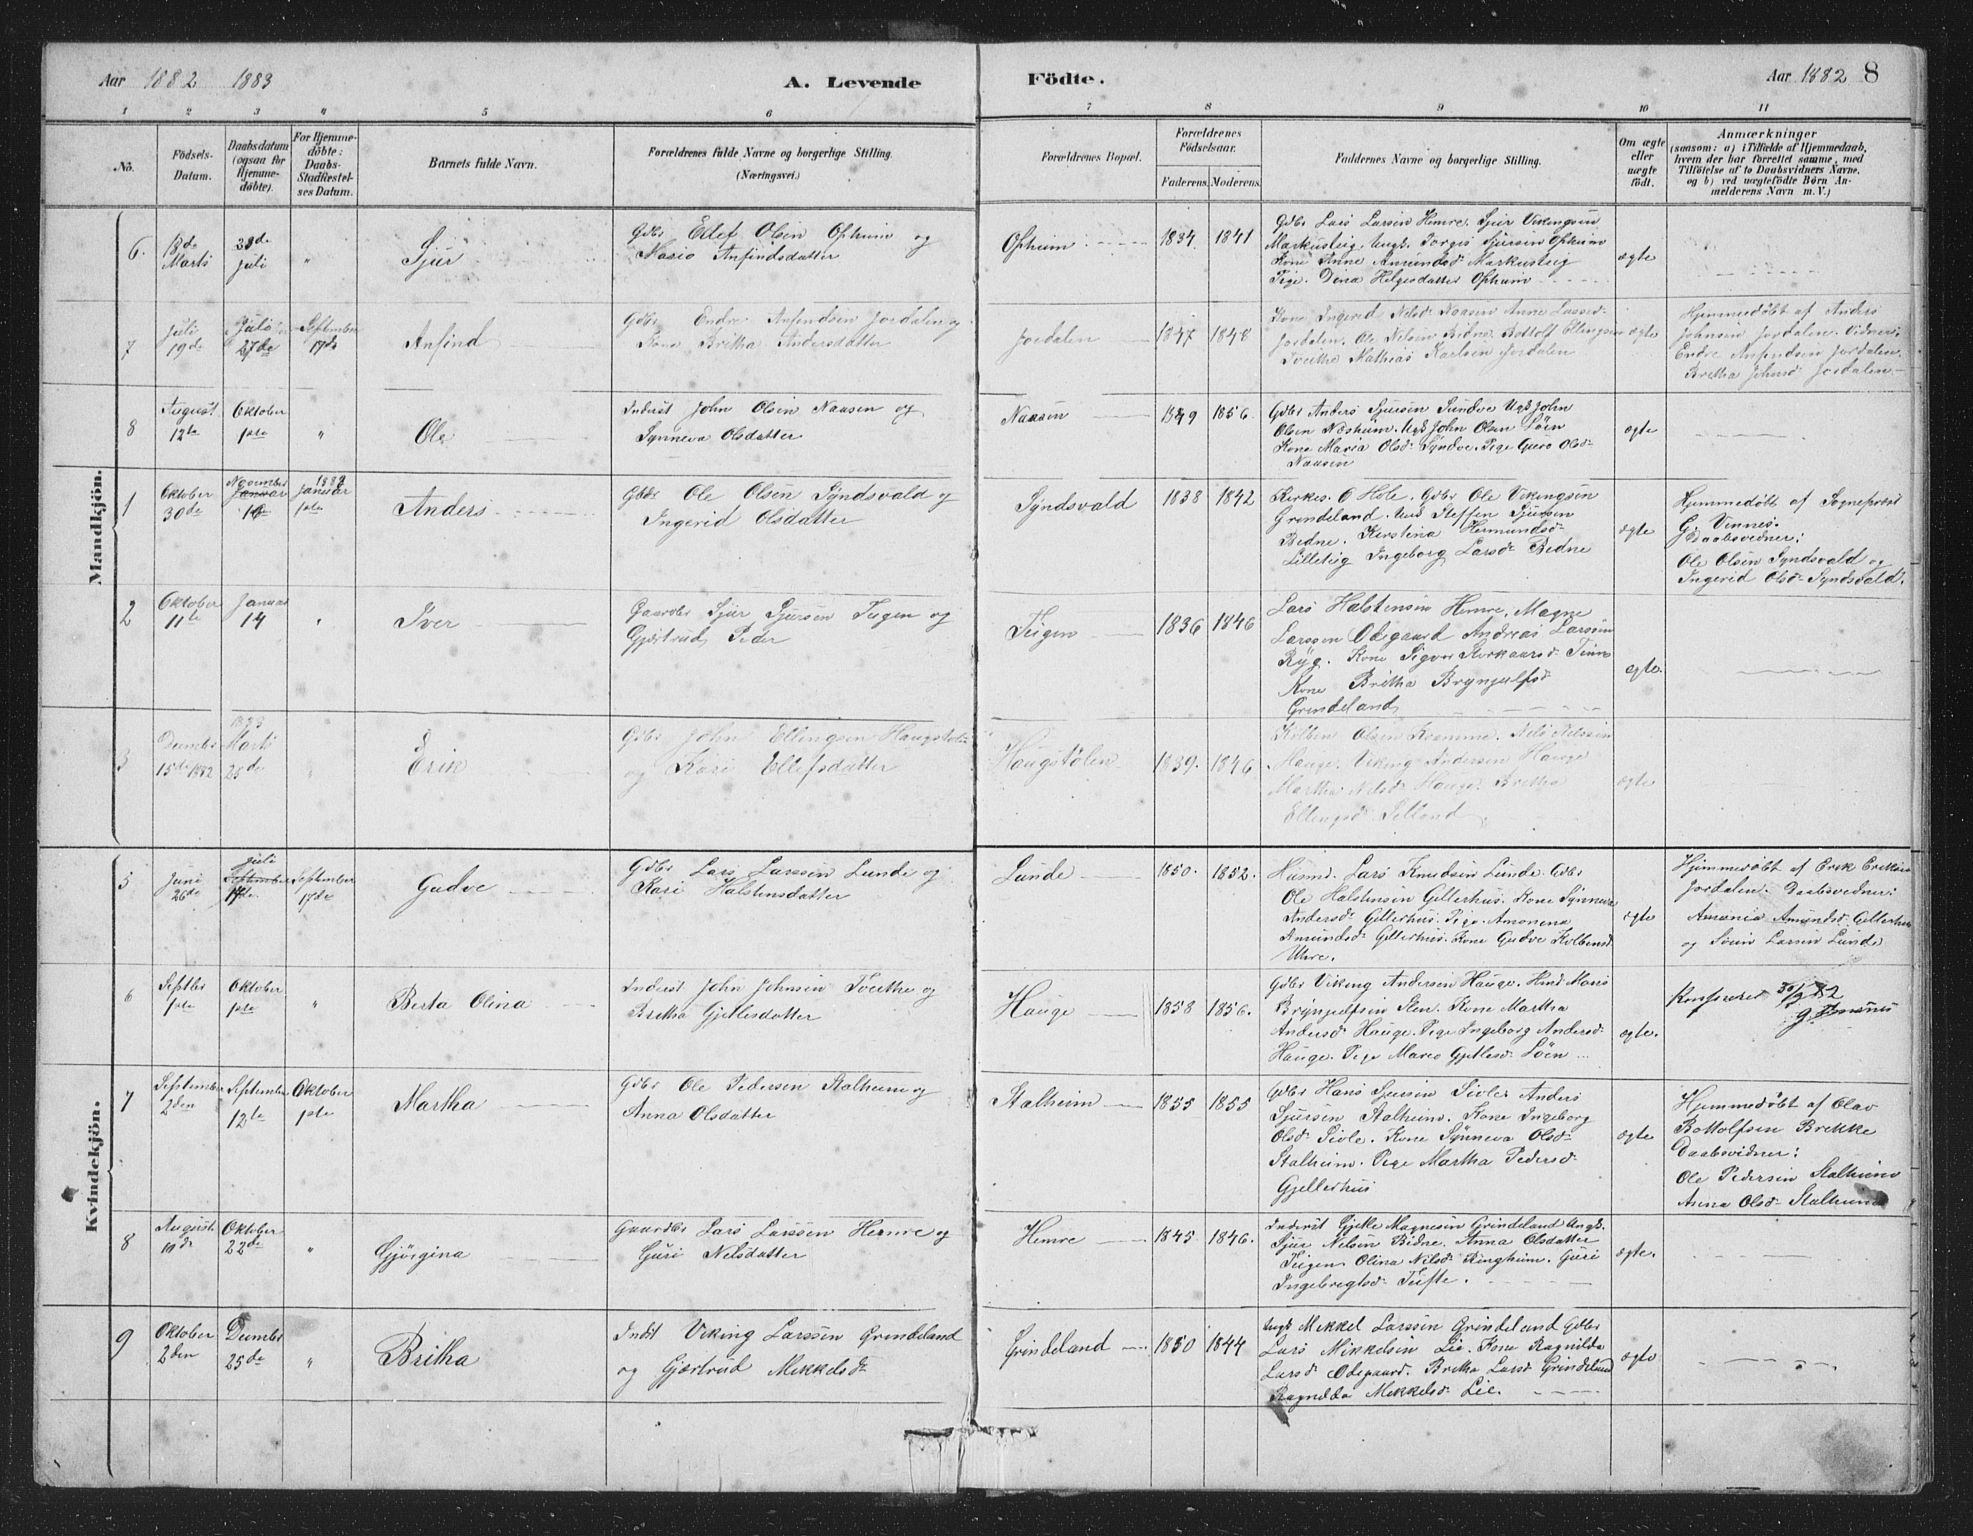 Aar 1882 1883 A. Levende Födte. Aar 1882 8
1 2 3 4 5 6 7 8 9 10 11
No. Födsels-Datum. Daabsdatum (ogsaa for Hjemme-döbte). For Hjemme-döbte: Daabs-Stadfæstel-ses Datum. Barnets fulde Navn. Forældrenes fulde Navne og borgerlige Stilling. (Næringsvei.) Forældrenes Bopæl. Forældrenes Födselsaar. Faderens. Moderens. Faddernes Navne og borgerlige Stilling. Om ægte eller uægte födt. Anmærkninger (saasom: a) i Tilfælde af Hjemmedaab, hvem der har forrettet samme, med Tilföielse af to Daabsvidners Navne, og b) ved uægtefödte Börn An-melderens Navn m. V.)
Mandkjön.
6. Marts Juli " Sjur
Gdbr Ellef Olsen Opheim og
Anfindsdatter
Opheim 1834 1841
Gdbr Lars Larsen Hemre. Sjur Vikingsen
Markusteig. Ungk. Torgis Sjursen Opheim
Kone Anne Amundsd. Markusteig
Pige. Dena Helgesdatter Opheim
ægte
7 Juli 19de Juli 27de September 17de Anfind
Gdbr Endre Anfindsen Jordalen og
Kone Britha Andersdatter
Jordalen 1847 1848
Kone Ingerid Nilsd. Naasen Anne Lassed.
Jordalen. Ole Nelsen Bidne. Bottolf Ellingsen
Tveitho Mathias Karlsen Jordalen
ægte
Hjemmedøbt af Anders
Johnsen Jordalen. Vidner:
Endre Anfindsen Jordalen.
Britha Johnsd. Jordalen.
8 August 12te Oktober 1ste " Ole
Inderst John Olsen Naasen og
Synneva Olsdatter
Naasen 1849 1856.
Gdbr Anders Sjursen Sundve Ungk John
Olsen Næsheim. Ungk John Olsen Løen
Kone Maria Olsd. Syndve. Pige Guro Olsd.
Naasen
ægte
1 Oktober 30de November Januar 1883 Januar 1ste Anders
Gbdr Ole Olsen Syndsvald og
Ingerid Olsdatter
Syndsvald 1838 1842
Kirkes. O Hole. Gdbr Ole Vikingsen
Grendeland. Ungk Steffen Sjursen
Bidne. Kirstina Hermundsd.
Lilleteig Ingeborg Larsd. Bidne
ægte
Hjemmedøbt af Sognepræst
G. Vinnes.
Daabsvidner:
Ole Olsen Syndsvald og
Ingerid Olsd. Syndsvald.
2 Oktober 11te Januar 14 " Iver
Gaardbr Sjur Sjursen Teigen og
Gjertrud Peder
Teigen 1836 1846
Lars Halstensen Hemre. Magne
Larssen Odegaard Andreas Larssen
Ryg. Kone Sigvor Storkaarsd. Tvinn
Kone Britha Brynjulfsd.
Grindeland
ægte.
3 15de 1882 1883 Marts 25de " Erik
Gdbr John Ellingsen Haugstøl
og Kari Ellefsdatter
Haugstølen 1839. 1846
Kolbein Olsen Kvamme. Nils Nilssen
Hauge. Viking Andersen Hauge
Martha Nilsd. Hauge. Britha
Ellingsd. Selland
ægte
Kvindekjön.
5 Juni 26de Juli September 17de September 17de Gudve
Gdbr Lars Larssen Lunde og
Kari Halstensdatter
Lunde 1850. 1852.
Husmd. Lars Knudsen Lunde. Gdbr
Ole Halstensen Gellerhus. Kone Synneva
Andersd. Gellerhus. Pige Amonena
Amundsd. Gellerhus. Kone Gudve Kolbensd.
Uhre.
ægte
Hjemmedøbt af Erik Eriksen
Jordalen. Daabsvidner:
Amonia Amundsd. Gellerhus
og Larsen Lunde
6 Septbr 1ste Oktober 1ste " Berta Olina
Inderst John Johnsen Tveithe og
Britha Gjellesdatter
Hauge 1858 1856.
Gdbr Viking Andersen Hauge.
Brynjulfsen Sten. Kone Martha
Andersd. Hauge. Pige Ingeborg Andersd.
Hauge. Pige Mario Gjellesd. Løen
ægte.
Konfereret 30/9 82
7 September 2den September 12te Oktober 1ste Martha
Gdbr Ole Pedersen Stalheim og
Anna Olsdatter
Stalheim 1855 1855
Gdbr Hans Sjursen Sivle. Anders
Sjursen Stalheim. Kone Ingeborg
Olsd. Sivle. Kone Synneva Olsd.
Stalheim. Pige Martha Pedersd.
Gjellerhus
ægte
Hjemmedøbt af Olav
Bottolfsen Brekke
Daabsvidner:
Ole Pedersen Stalheim
Anna Olsd. Stalheim
8 August 10de Oktober 22de " Gjørgina
Gaardbr Lars Larssen Hemre og
Guri Nelsdatter
Hemre 1845 1846.
Inderst Gjelle Magnesen Grindeland Ungk.
Sjur Nelsen Bidne. Anna Olsdatter
Teigen Olina Nilsd. Ringheim. Guri
Ingebregtsd. Tufte.
ægte.
9 Oktober 2den 25de " Britha
Indst Viking Larssen Grindeland
og Gjertrud Mikkelsd.
Grindeland 1850 1844
Ungk Mikkel Larssen Grindeland Gdbr
Lars Mikkelsen Lie. Kone Ragnilda
Larsd. Odegaard. Britha Larsd. Grindeland
Ragnilda Mikkelsd. Lie.
ægte